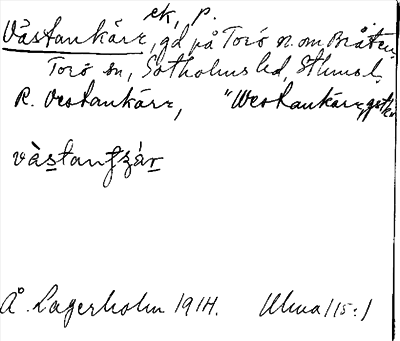 ek, p.
Västankärr, gd på Torö n. om Bråten,
Torö sn, Sotholms hd, Sthms l.
R. Vestankärr, "Westankärr,
vàstanʈʂár
Å. Lagerholm 1914. Ulma 115:1